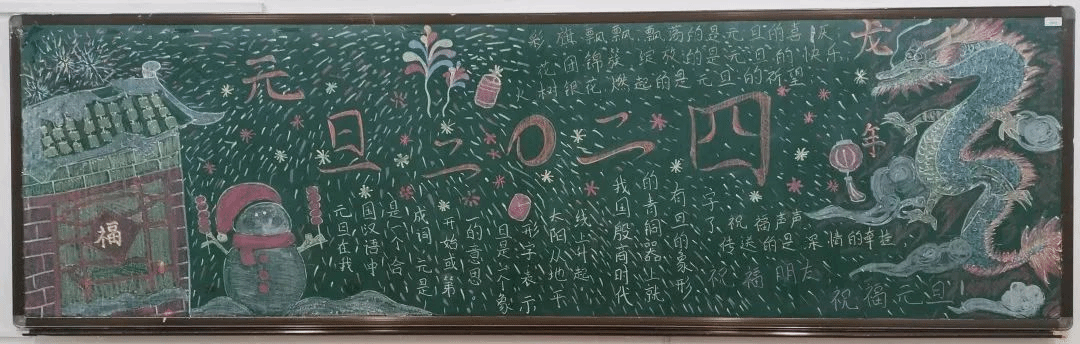 元旦二〇二四
彩旗飘飘,飘荡的是元旦的喜庆
花团锦簇,绽放的是元旦的快乐
火树银花,燃起的是元旦的祈望
龙年
福
元旦在我
国汉语中
是一个合
成词 元是
开始或第
一的意思
旦是一个象
形字表示
太阳从地平
线上升起
我国殷商时代
的青铜器上就
有旦的象形
字了
祝福声声
传送的是深情的牵挂
祝福朋友
祝福元旦